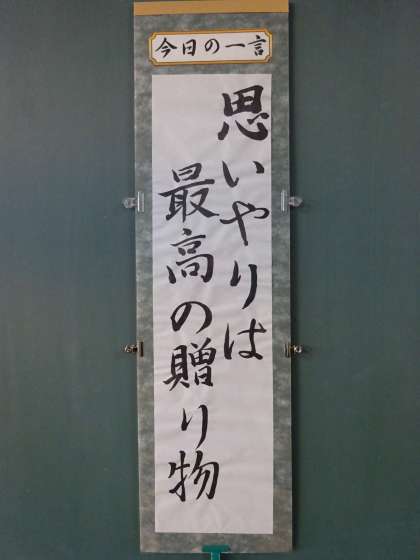 今日の一言
思いやりは
最高の贈り物